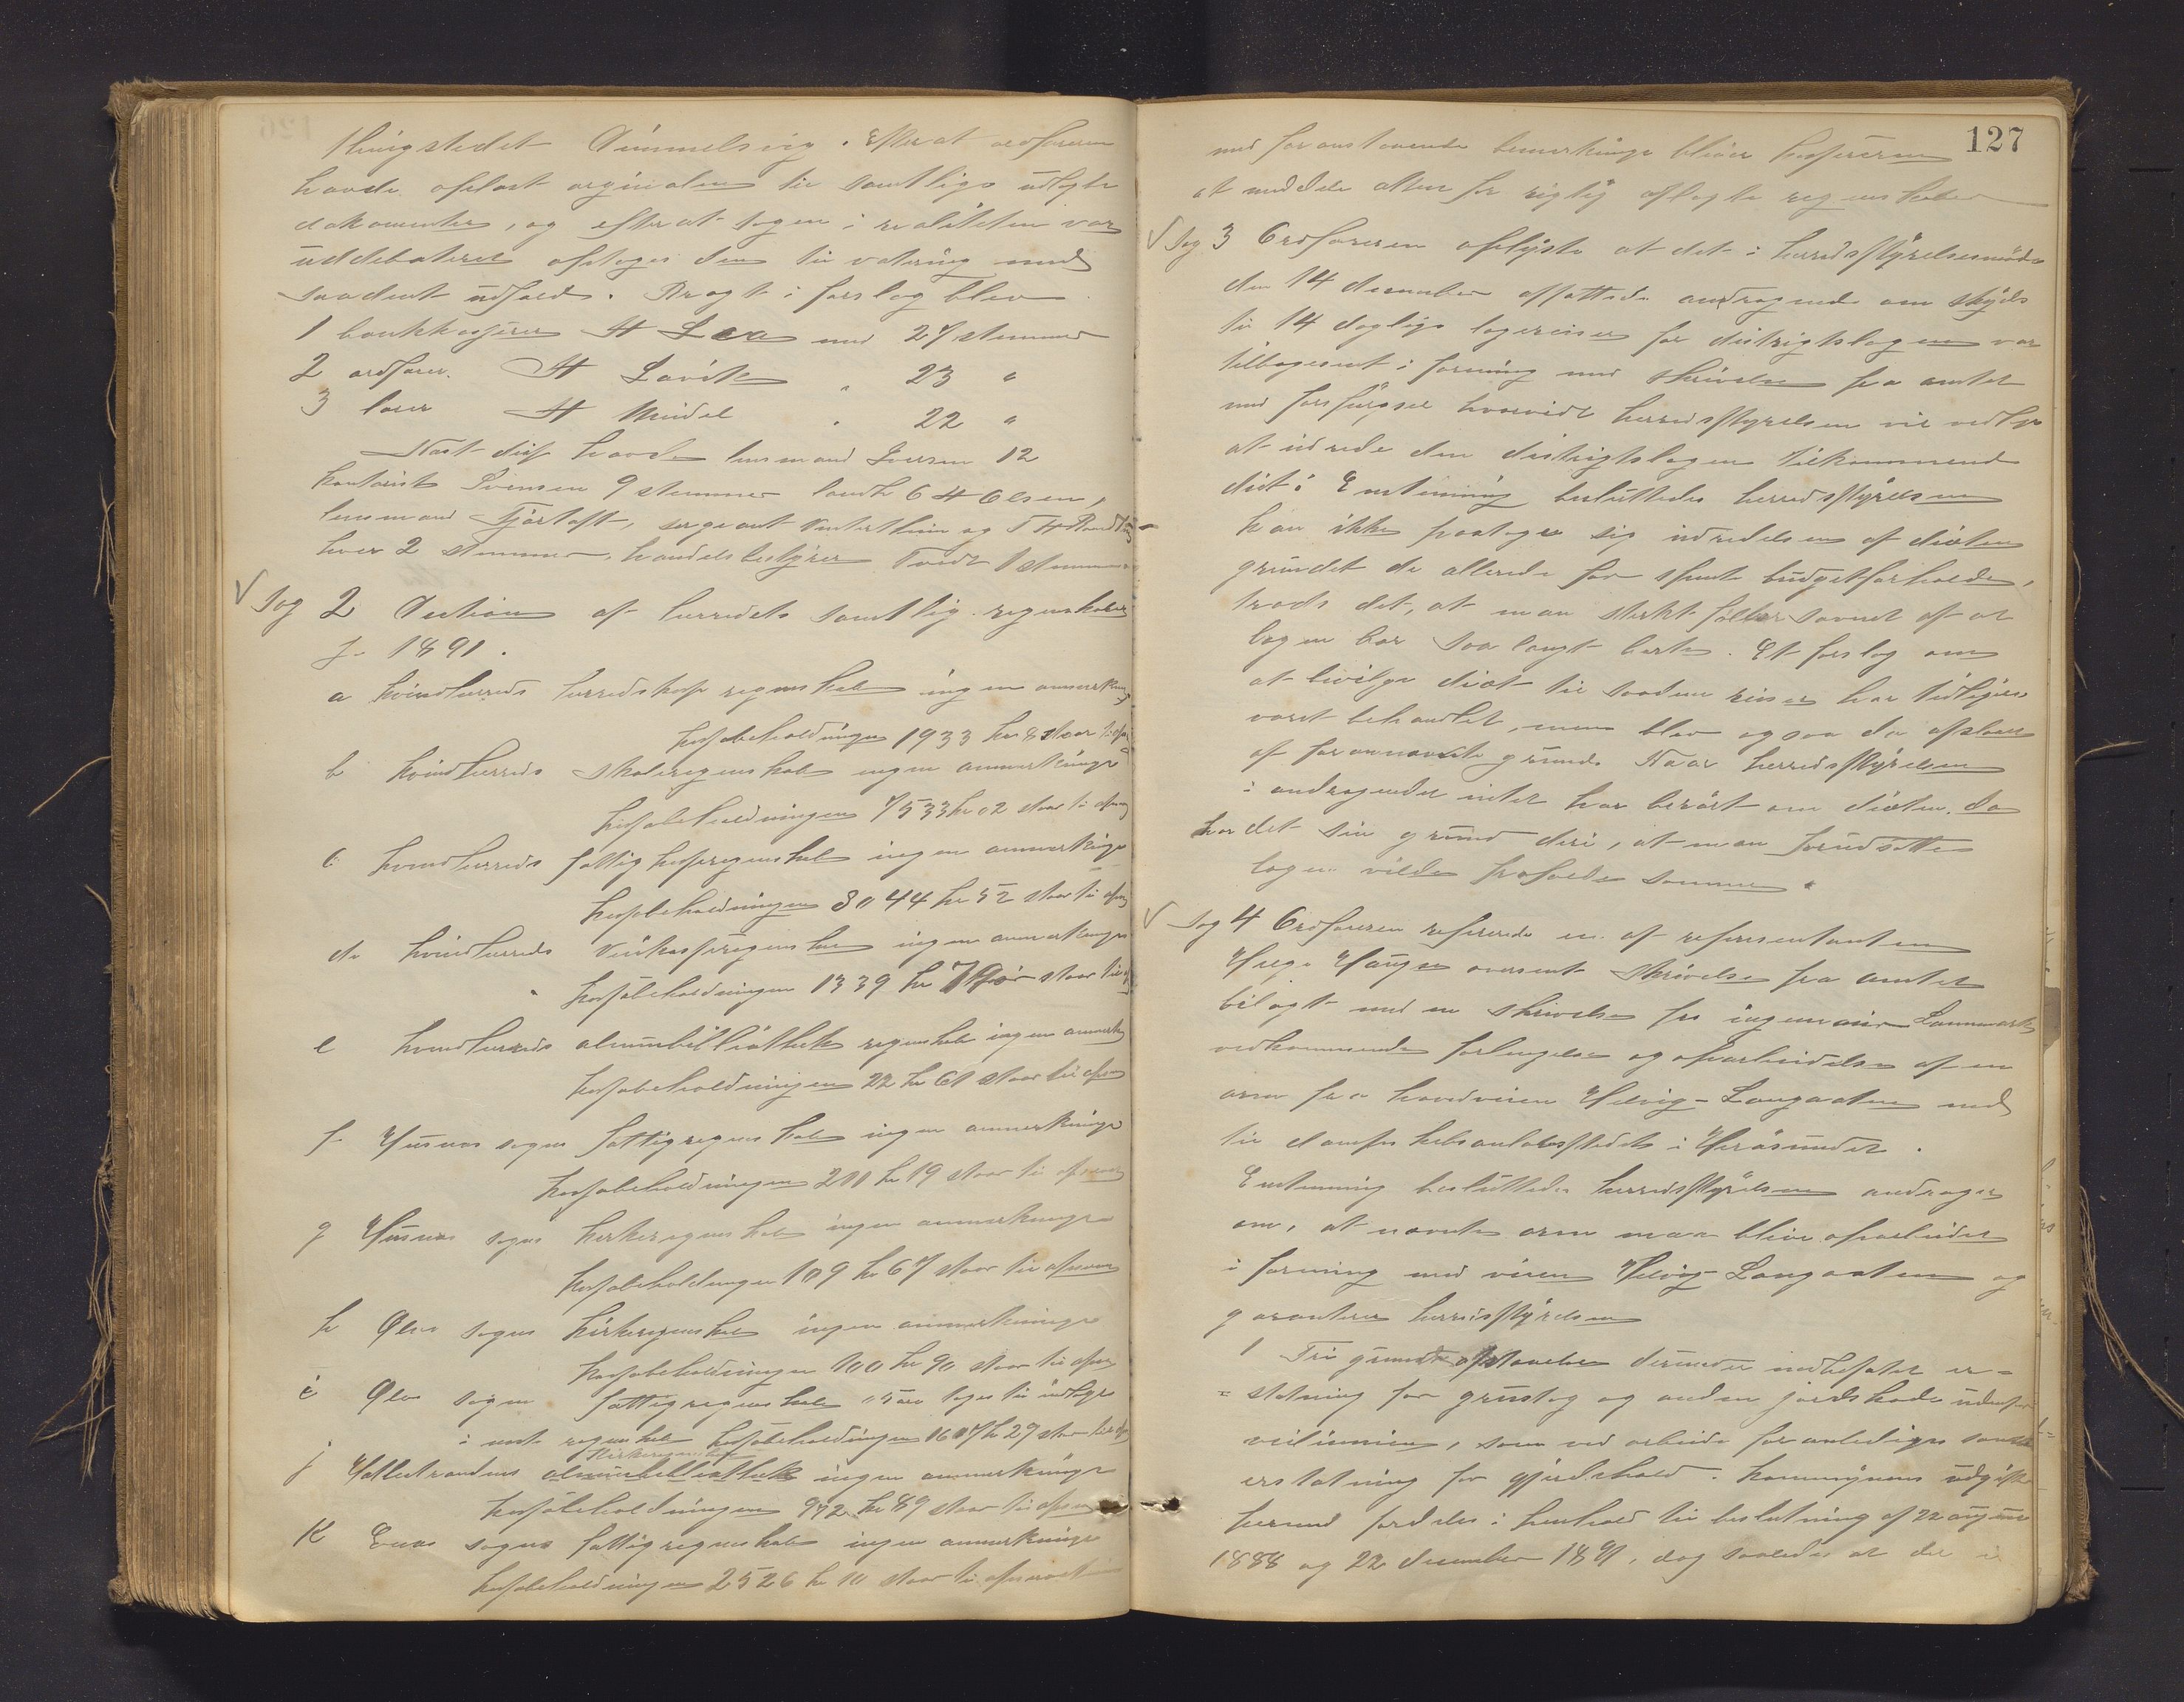 thingstedet Dimmelsvig. Efterat ordføreren
havde oplæst orginalen til samtlige udlagte
dokumenter, og efterat sagen i realiteten var
uddebateret optoges den til votering med
saadant udfald. Bragt i forslag blev
1 bankkasserer H Lea med 27 stemmer
2 ordfører H Lavik " 23 "
3 lærer H Mindel " 22 "
Næst disse havde lensmand Iversen 12
kontorist Svensen 9 stemmer landh O H Olsen,
lensmand Tjørtoft, sergeant og T H
hver 2 stemmer, handelsbestyrer Tvedt 1 stemme
V Sag 2 Decision af herredets samtlige regnskaber
f. 1891.
a Kvindherreds herredskasse regnskab ingen anmerkning
kassabeholdningen 1933 kr 8 staar til
b Kvindherreds skoleregnskab ingen anmerkninger
kassabeholdningen 7533 kr 02 staar til
c Kvindherreds fattigkasseregnskab ingen anmerkninger
kassabeholdningen 3044 kr 52 staar til
d. Kvindherreds veikasseregnskab ingen anmerkninger
kassabeholdningen 1339 kr staar til
e Kvindherreds almuebibliothek regnskab ingen
kassabeholdningen 22 kr 61 staar til
f Husnæs sogns fattigregnskab ingen anmerkninger
kassabeholdningen 200 kr 19 staar til
g Husnæs sogns kirkeregnskab ingen anmerkninger
kassabeholdningen 109 kr 67 staar til
h Ølve sogns kirkeregnskab ingen anmerkninger
kassabeholdningen 100 kr 90 staar til
i Ølve sogns fattigregnskab øre tages til indtægt
i næste regnskab kassabeholdningen kr 27 staar til
kirkeregnskab
j Hatlestrandens almuebibliothek ingen anmerkninger
kassabeholdningen 972 kr 89 staar til
K Enæs sogns fattigregnskab ingen anmerkninger
kassabeholdningen 2526 kr 10 staar til
127
med foranstaaende bemerkninger bliver kassereren
at meddele attest for rigtig aflagte regnskaber
V Sag 3 Ordføreren oplyste at det i herredsstyrelsesmøde
den 14 december affattede andragende om skyds
til 14 daglige lægereiser for distrigtslægen var
tilbagesent i forening med skrivelse fra amtet
med forspørgser hvorvidt herredsstyrelsen vil vedtage
at udrede den distrigtslægen tilkommende
diæt. Enstemmig besluttedes herredsstyrelsen
kan ikke paatage sig udredelsen af diæten
grundet de allerede for spente budgetforholde,
trods det, at man sterkt føller savnet af at
lægen bor saa langt borte. Et forslag om
at bevilge diæt til saadane reiser har tidligere
været behandlet, men blev ogsaa da afslaaet
af forannævnte grunde. Naar herredsstyrelsen
i andragendet intet har berørt om diæten. da
har det sin grund deri, at man forudsatte
lægen vilde frafalde samme.
V Sag 4 Ordføreren refererede en af representanten
Helge Haugen oversent skrivelse fra amtet
bilagt med en skrivelse fra ingeniør
vedkommende forlængelse og oparbeidelse af en
arm fra hovedveien Helvig-Langaaten ned
til dampskibsanløbsstedet i Herøsundet.
Enstemmig besluttedes herredsstyrelsen andrager
om, at nævnte arm maa blive oparbeidet
i forening med veien Helvig-Langaaten og
garanterer herredsstyrelsen
1 Fri grunds afstaaelse derunder indbefatet er-
= statning for grustag og anden jordskade udenfor
veilinien, som ved arbeide foranlediges samt
erstatning for gjærdehold. Kommunens udgifter
herved fordeles i henhold til beslutning af 22
1888 og 22 december 1891, dog saaledes at det